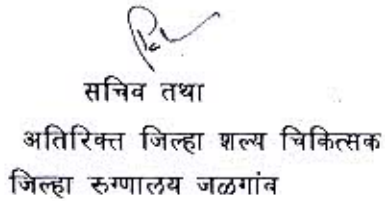 सचिव तथा
अतिरिक्त जिल्हा शल्य चिकित्सक
जिल्हा रुग्णालय जळगांव